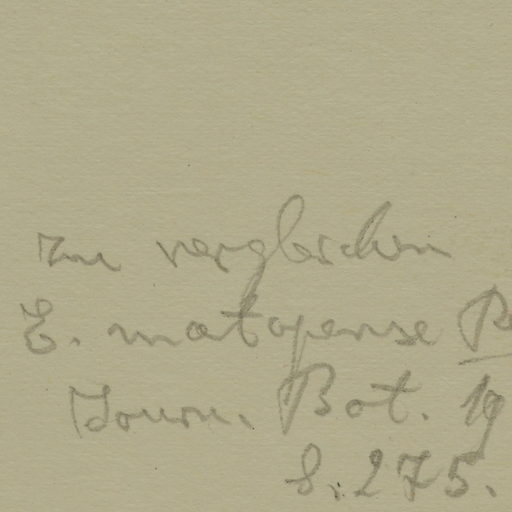 zu vergleichen
E. matopense
Journ. Bot. 19
S. 275.